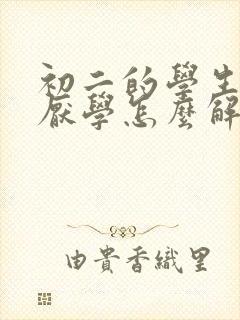 初二的學生
厭學怎麼解
由貴香織里